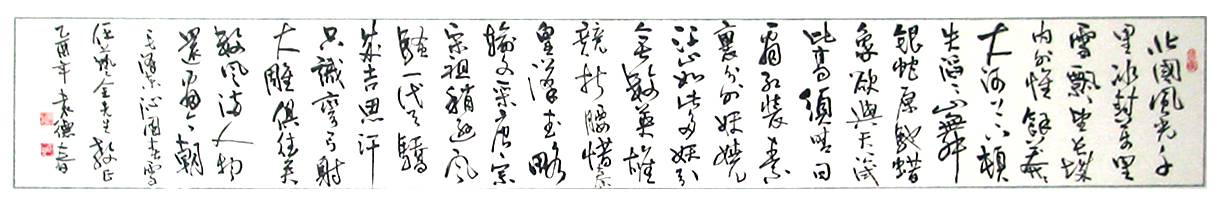 北國風光千
里冰封萬里
雪飄望長城
内外惟餘莽莽
大河上下頓
失滔滔山舞
銀蛇原馳蜡
象欲與天公試
比高須晴日
看紅裝素
裹分外妖嬈
江山如此多嬌引
無數英雄
競折腰惜秦
皇漢武略
輸文采唐宗
宋祖稍遜風
騷一代天驕
成吉思汗
只識彎弓射
大雕俱往矣
數風流人物
還看今朝
毛澤東沁園春雪
藝全先生教正
乙酉年袁德